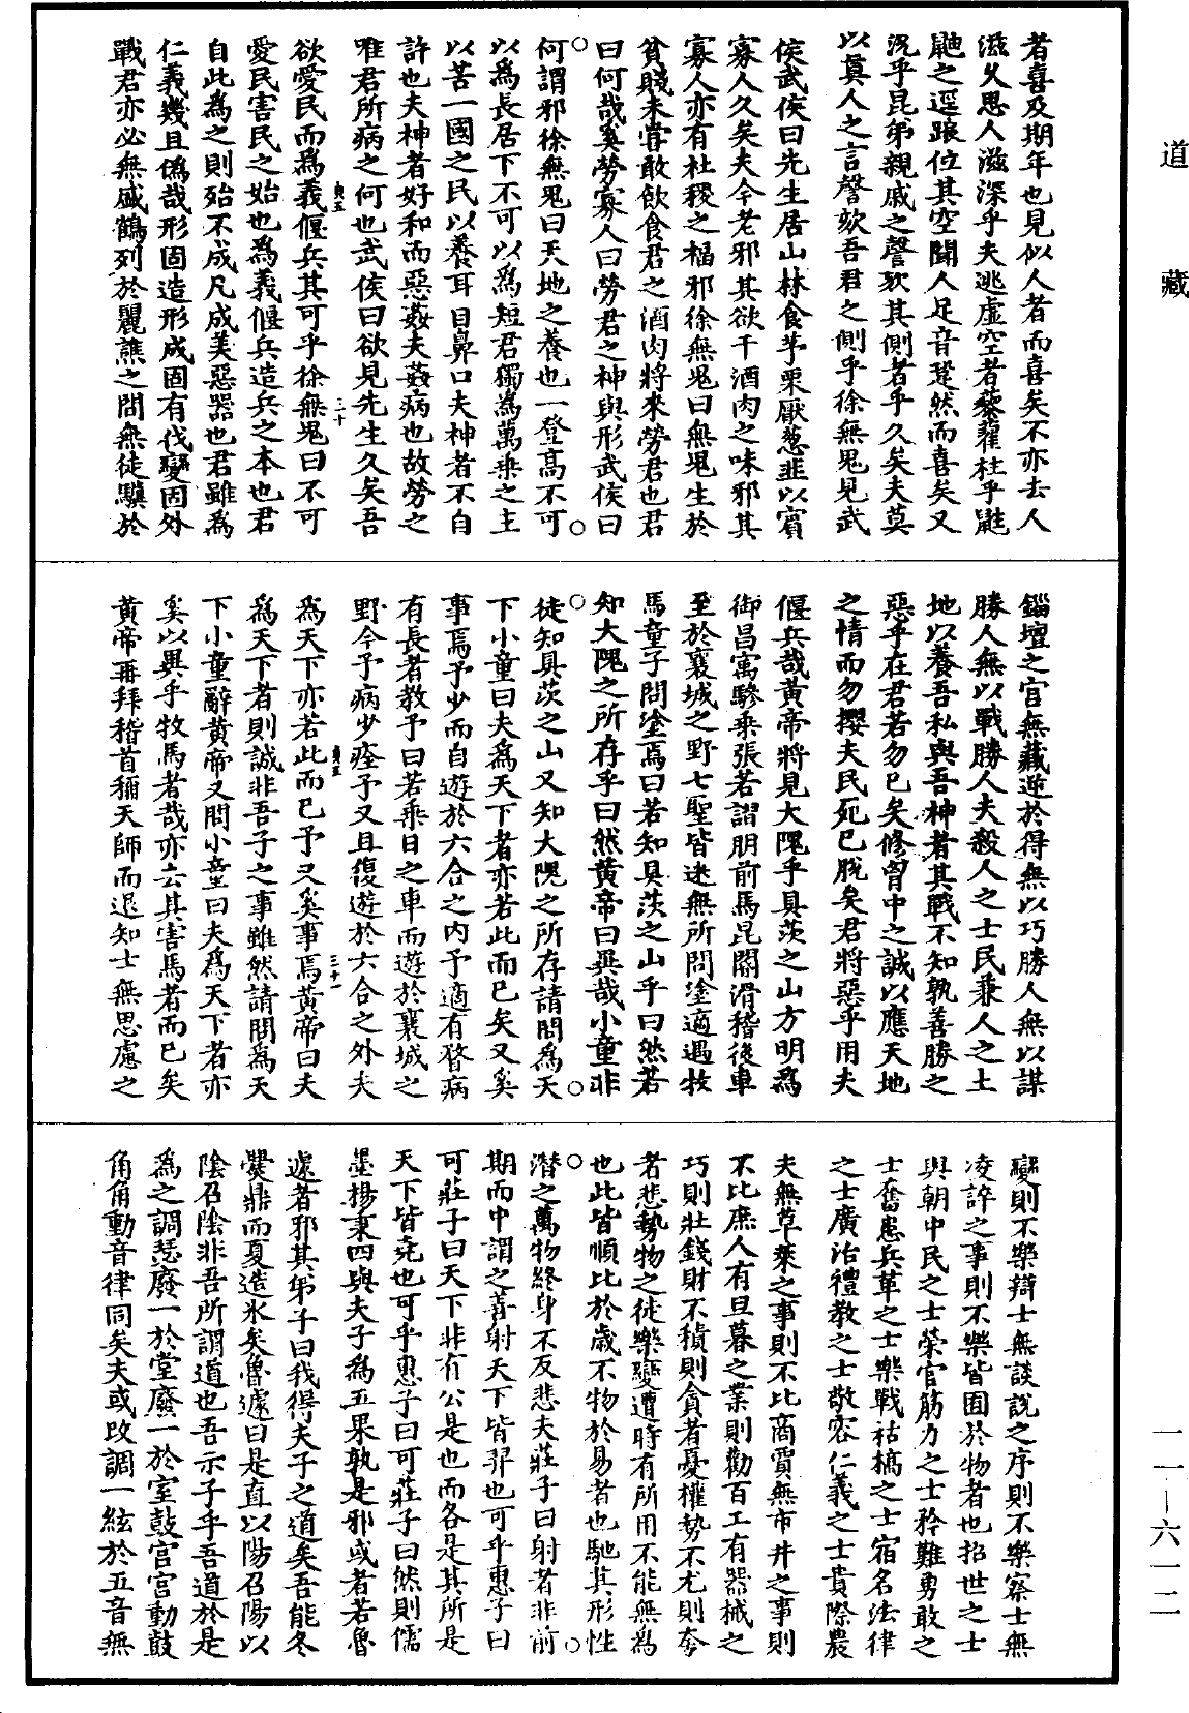 道藏
者喜及期年也見似人者而喜矣不亦去人
滋久思人滋深乎夫逃虛空者藜藿柱乎鼪
鼬之逕踉位其空聞人足音跫然而喜矣又
況乎昆弟親戚之謦欬其側者乎久矣夫莫
以眞人之言謦欬吾君之側乎徐無鬼見武
侯武侯曰先生居山林食芧栗厭葱韭以賓
寡人久矣夫今老邪其欲干酒肉之味邪其
寡人亦有社稷之福邪徐無鬼曰無鬼生於
貧賤未甞敢飲食君之酒肉將來勞君也君
曰何哉奚勞寡人曰勞君之神與形武侯曰
何謂邪徐無鬼曰天地之養也一登高不可
以爲長居下不可以爲短君獨爲萬乘之主
以苦一國之民以養耳目鼻口夫神者不自
許也夫神者好和而惡姦夫姦病也故勞之
唯君所病之何也武侯曰欲見先生久矣吾
欲愛民而爲義偃兵其可乎徐無鬼曰不可
愛民害民之始也爲義偃兵造兵之本也君
自此爲之則殆不成凡成美惡器也君雖爲
仁義幾且僞哉形固造形成固有伐變固外
戰君亦必無盛鶴列於麗譙之間無徒驥於
錙壇之宫無藏逆於得無以巧勝人無以謀
勝人無以戰勝人夫殺人之士民兼人之土
地以養吾私與吾神者其戰不知孰善勝之
惡乎在君若勿已矣修胷中之誠以應天地
之情而勿攖夫民死已脱矣君將惡乎用夫
偃兵哉黄帝將見大隗乎具茨之山方明爲
御昌寓驂乘張若謵朋前馬昆閽滑稽後車
至於襄城之野七聖皆迷無所問塗適遇牧
馬童子問塗焉曰若知具茨之山乎曰然若
知大隗之所存乎曰然黄帝曰異哉小童非
徒知具茨之山又知大隗之所存請問爲天
下小童曰夫爲天下者亦若此而已矣又奚
事焉予少而自遊於六合之内予適有瞀病
有長者教予曰若乘日之車而遊於襄城之
野今予病少痊予又且復遊於六合之外夫
爲天下亦若此而已予又奚事焉黄帝曰夫
爲天下者則誠非吾子之事雖然請問爲天
下小童辭黄帝又問小童曰夫爲天下者亦
奚以異乎牧馬者哉亦去其害馬者而已矣
黄帝再拜稽首稱天師而退知士無思慮之
變則不樂辯士無談說之序則不樂察士無
凌誶之事則不樂皆囿於物者也招世之士
與朝中民之士榮官筋力之士矜難勇敢之
士奮患兵革之士樂戰枯槁之士宿名法律
之士廣治禮教之士敬容仁義之士貴際農
夫無草萊之事則不比商賈無市井之事則
不比庶人有旦暮之業則勸百工有器械之
巧則壯錢財不積則貪者憂權勢不尤則夸
者悲勢物之徒樂變遭時有所用不能無爲
也此皆順比於歲不物於易者也馳其形性
潛之萬物終身不反悲夫莊子曰射者非前
期而中謂之善射天下皆羿也可乎惠子曰
可莊子曰天下非有公是也而各是其所是
天下皆堯也可乎惠子曰可莊子曰然則儒
墨楊秉四與夫子爲五果孰是邪或者若魯
遽者邪其弟子曰我得夫子之道矣吾能冬
爨鼎而夏造氷矣魯遽曰是直以陽召陽以
陰召陰非吾所謂道也吾示子乎吾道於是
爲之調瑟廢一於堂廢一於室鼓宫宫動鼓
角角動音律同矣夫或改調一絃於五音無
一一—六一二